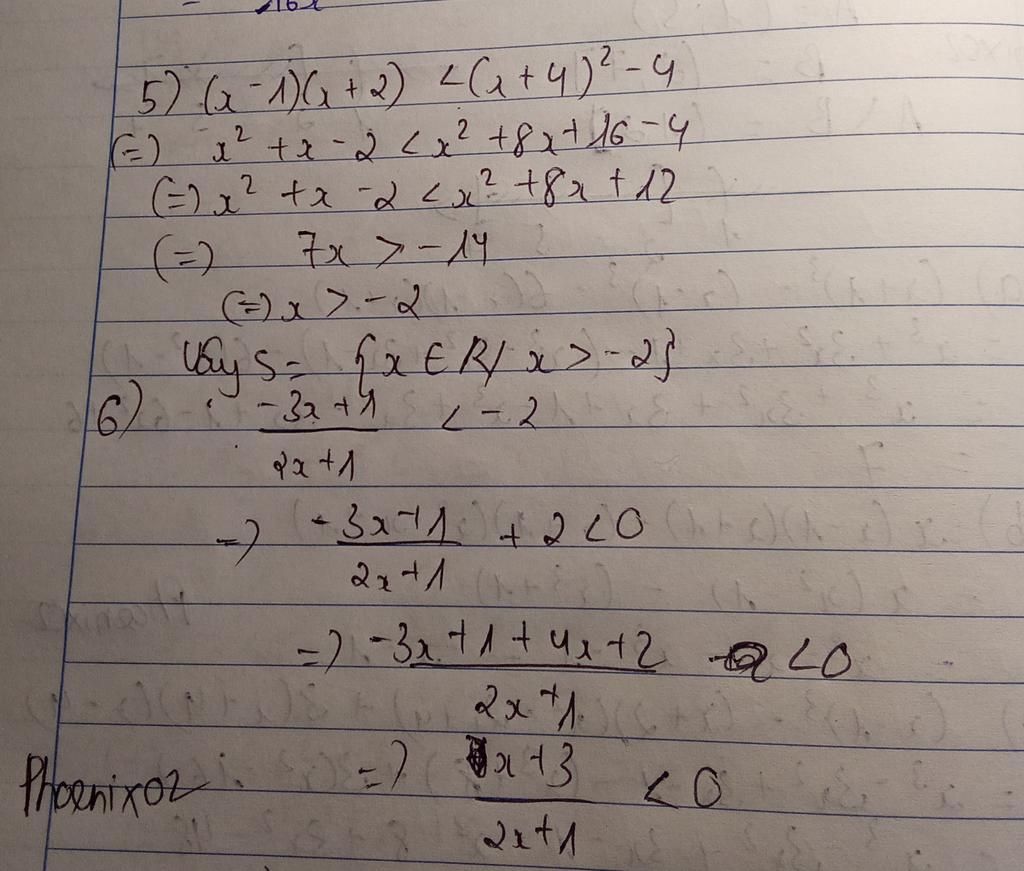 5) (x-1)(x+2) <(x+4)² -4
(=) x² +x -2 <x² +8x+16-4
(=) x² +x -2 <x² +8x +12
(=) 7x > -14
(=) x > -2
Vậy S= {x ∈ R/ x > -2}
6) -3x+1 / 2x+1 < -2
=) -3x+1 / 2x+1 + 2 <0
=) -3x+1+4x+2 / 2x+1 <0
Phoenix02 =) x+3 / 2x+1 <0